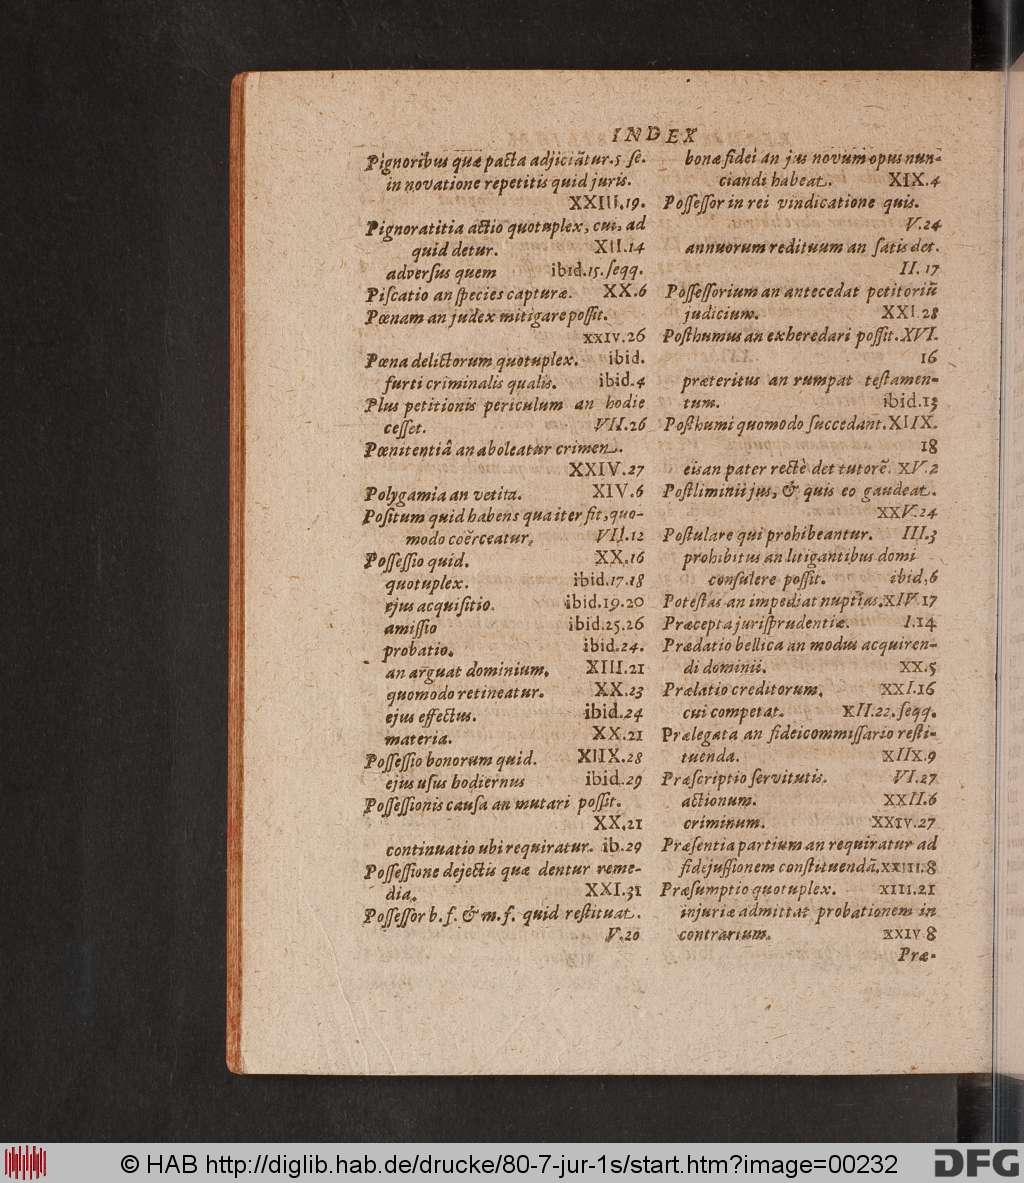 INDEX
Pignoribus quæ pacta adjiciãtur. 5 ſe.
in novatione repetitis quid juris.
XXIII.19.
Pignoratitia actio quotuplex, cui, ad
quid detur. XII.14
adverſus quem ibid.15.ſeqq.
Piſcatio an ſpecies capturæ. XX.6
Pœnam an judex mitigare poſſit.
XXIV.26
Pœna delictorum quotuplex. ibid.
furti criminalis qualis. ibid.4
Plus petitionis periculum an hodie
ceſſet. VII.26
Pœnitentiâ an aboleatur crimen.
XXIV.27
Polygamia an vetita. XIV.6
Poſitum quid habens qua iter fit, quo-
modo coërceatur. VII.12
Poſſeſſio quid. XX.16
quotuplex. ibid.17.18
ejus acquiſitio. ibid.19.20
amiſſio ibid.25.26
probatio. ibid.24.
an arguat dominium. XIII.21
quomodo retineatur. XX.23
ejus effectus. ibid.24
materia. XX.21
Poſſeſſio bonorum quid. XIIX.28
ejus uſus hodiernus ibid.29
Poſſeſſionis cauſa an mutari poſſit.
XX.21
continuatio ubi requiratur. ib.29
Poſſeſſione dejectis quæ dentur reme-
dia. XXI.31
Poſſeſſor b.f. & m.f. quid reſtituat.
V.20
bonæ fidei an jus novum opus nun-
ciandi habeat. XIX.4
Poſſeſſor in rei vindicatione quis.
V.24
annuorum redituum an ſatis det.
II.17
Poſſeſſorium an antecedat petitoriũ
judicium. XXI.28
Poſthumus an exheredari poſſit. XVI.
16
præteritus an rumpat teſtamen-
tum. ibid.13
Poſthumi quomodo ſuccedant. XIIX.
18
eis an pater rectè det tutorẽ. XV.2
Poſtliminii jus, & quis eo gaudeat.
XXV.24
Poſtulare qui prohibeantur. III.3
prohibitus an litigantibus domi
conſulere poſſit. ibid,6
Poteſtas an impediat nuptias. XIV.17
Præcepta jurisprudentiæ. I.14
Prædatio bellica an modus acquiren-
di dominii. XX.5
Prælatio creditorum. XXI.16
cui competat. XII.22.ſeqq.
Prælegata an fideicommiſſario reſti-
tuenda. XIIX.9
Præſcriptio ſervitutis. VI.27
actionum. XXII.6
criminum. XXIV.27
Præſentia partium an requiratur ad
fidejuſſionem conſtituendã. XXIII.8
Præſumptio quotuplex. XIII.21
injuriæ admittat probationem in
contrarium. XXIV 8
Præ-
© HAB http://diglib.hab.de/drucke/80-7-jur-1s/start.htm?image=00232
DFG